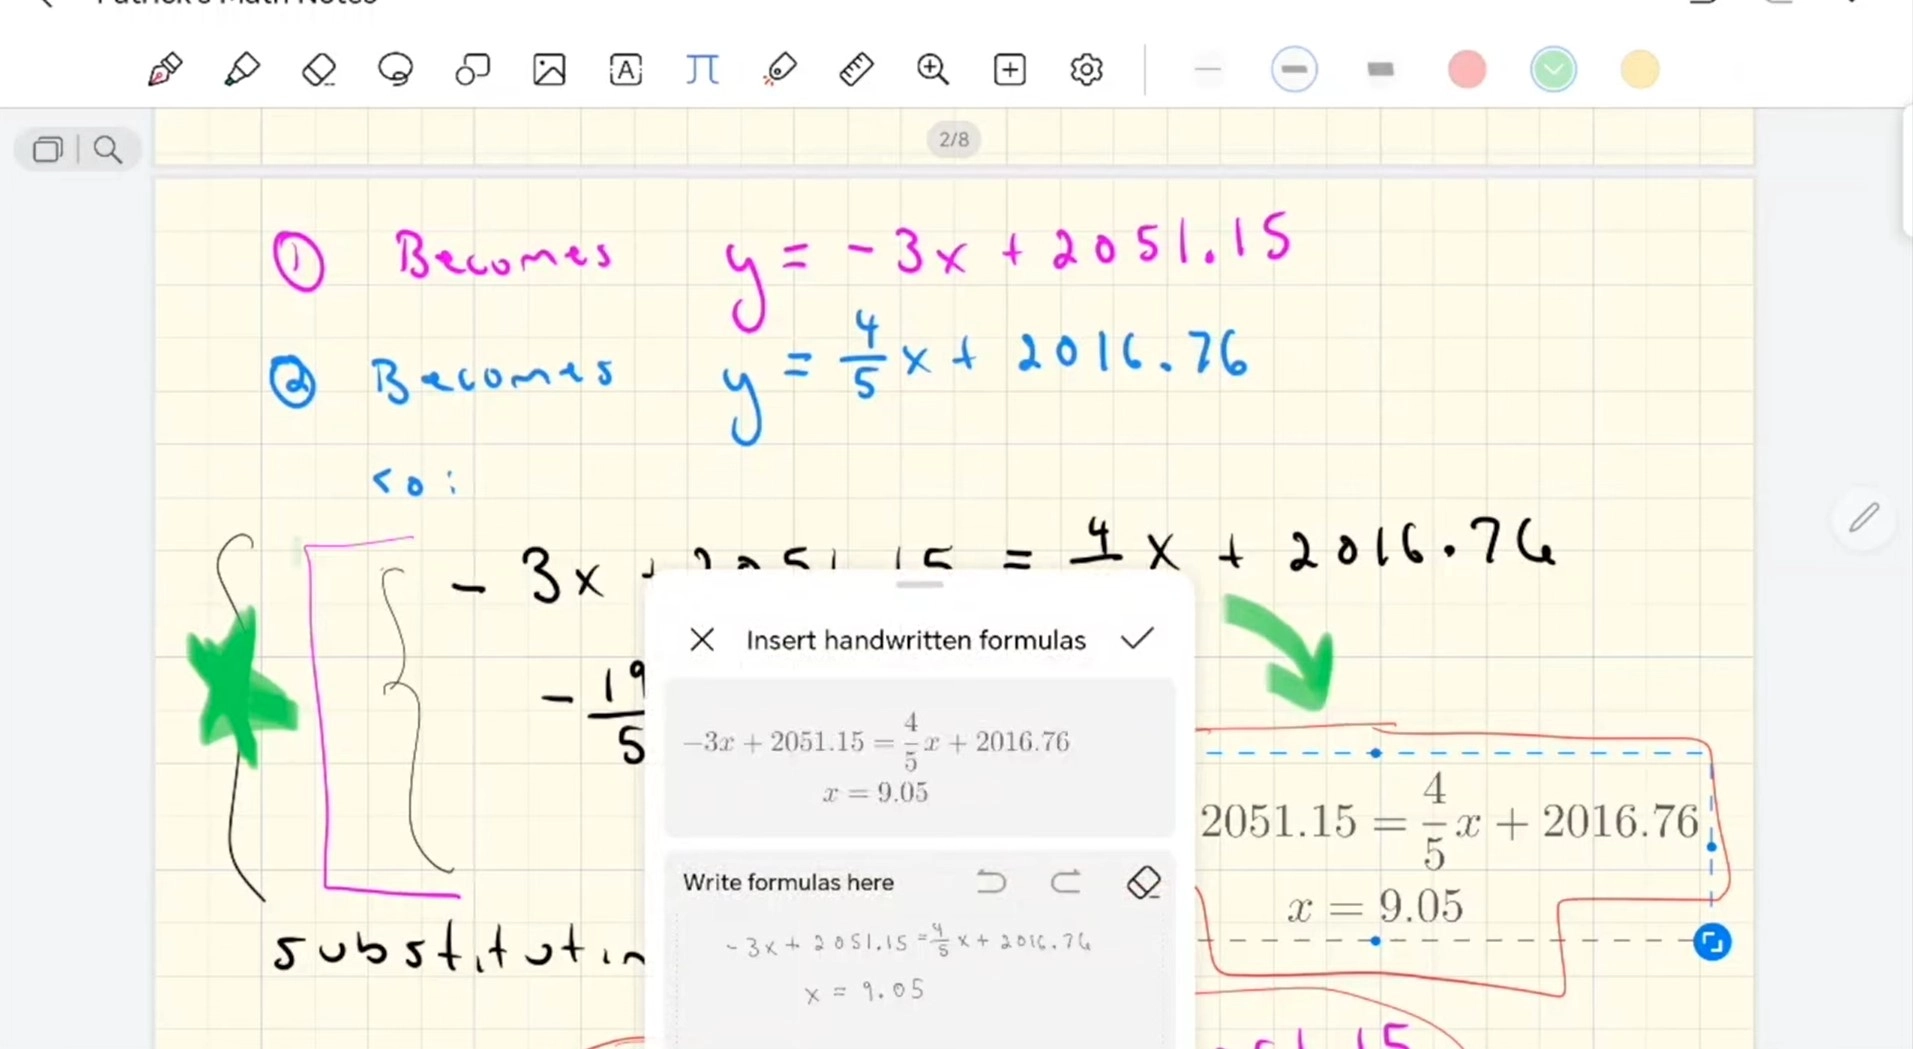 Patrick's Math Notes
2/8
① Becomes y = -3x + 2051.15
② Becomes y = 4/5 x + 2016.76
so:
-3x + 2051.15 = 4 x + 2016.76
Insert handwritten formulas
-19
5
−3x + 2051.15 = 4/5 x + 2016.76
x = 9.05
2051.15 = 4/5 x + 2016.76
x = 9.05
Write formulas here
-3x + 2051.15 = 4/5 x + 2016.76
x = 9.05
substitutin
51.15